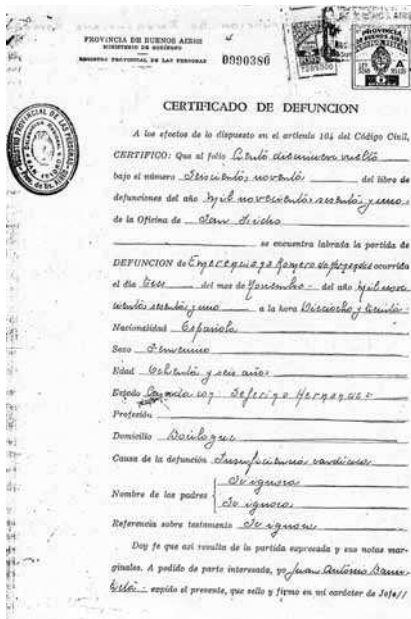 PROVINCIA DE BUENOS AIRES
MINISTERIO DE GOBIERNO
REGISTRO PROVINCIAL DE LAS PERSONAS
0990386
PROVINCIA
CERTIFICADO DE DEFUNCION
A los efectos de lo dispuesto en el artículo 104 del Código Civil,
CERTIFICO: Que al folio Ciento diecinueve vuelto
bajo el número Seiscientos noventa del libro de
defunciones del año Mil novecientos sesenta y uno
de la Oficina de San Isidro
se encuentra labrada la partida de
DEFUNCION de Romero de ocurrida
el día del mes de Noviembre del año Mil nove
cientos sesenta y uno a la hora Dieciocho y treinta
Nacionalidad Española
Sexo Femenino
Edad Ochenta y seis años
Estado Casada con: Seferino Hernandez
Profesión
Domicilio Boulogne
Causa de la defunción Insuficiencia cardiaca
Nombre de los padres Se ignora
Se ignora
Referencia sobre testamento Se ignora
Doy fe que así resulta de la partida expresada y sus notas mar-
ginales. A pedido de parte interesada, yo Juan Antonio
expido el presente, que sello y firmo en mi carácter de Jefe//